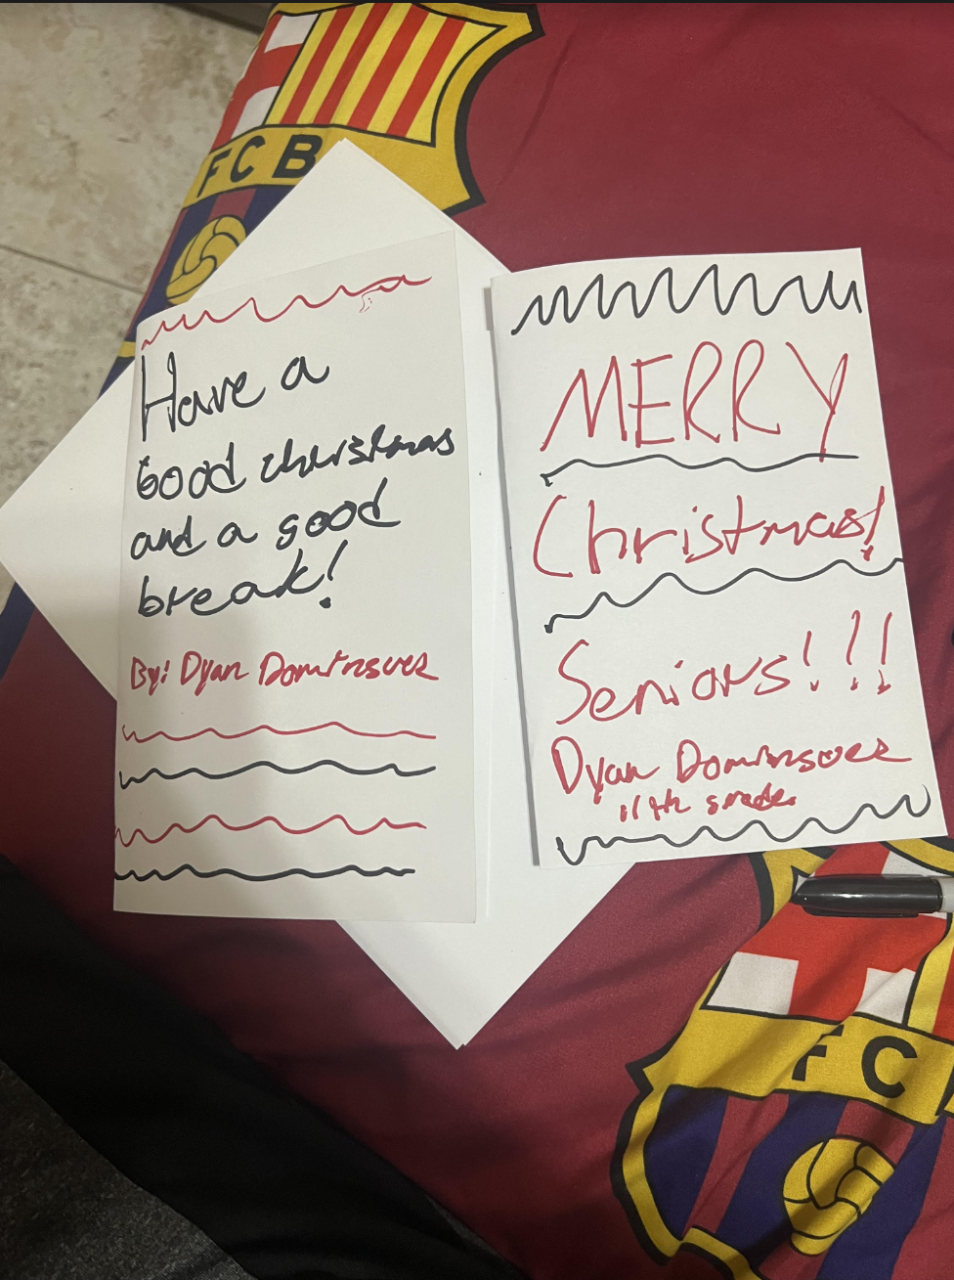 FCB
Have a
Good christmas
and a good
break!
By: Dyan Dominsuez
MERRY
Christmas!
Seniors!!!
Dyan Dominsuez
11th grade
FC